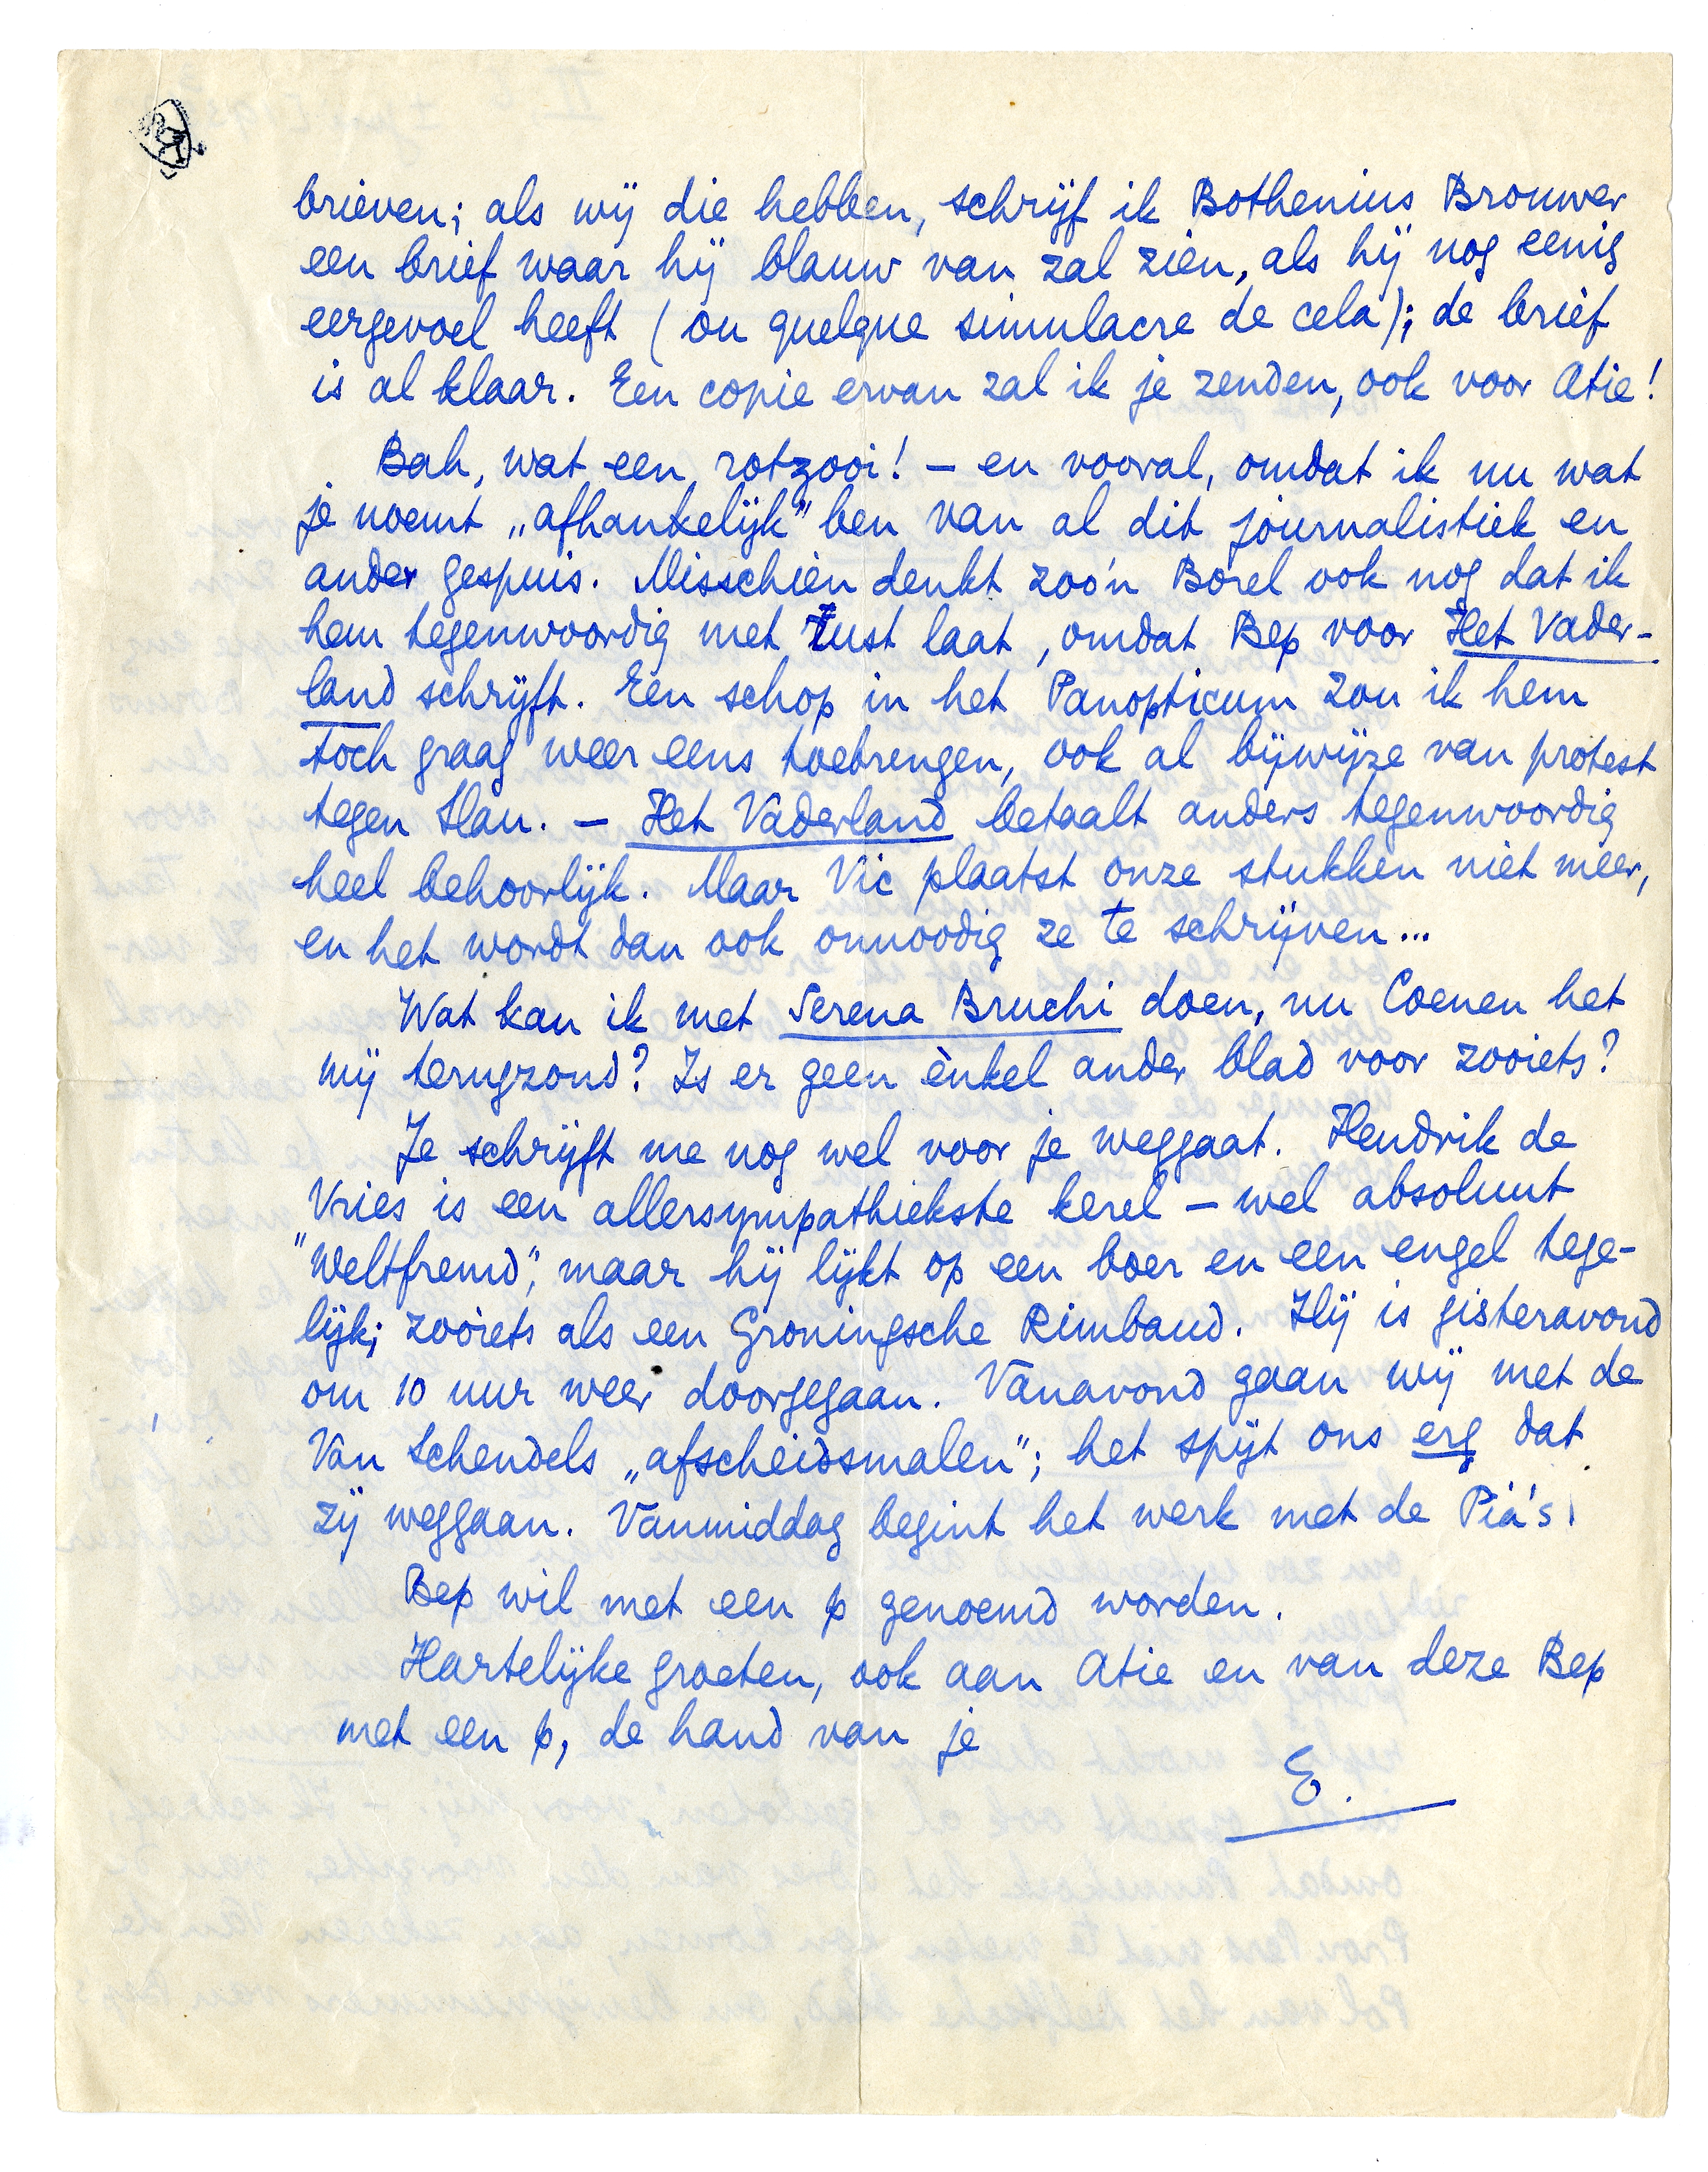 brieven; als wij die hebben, schrijf ik Bothenius Brouwer
een brief waar hij blauw van zal zien, als hij nog eenig
eergevoel heeft (ou quelque simulacre de cela); de brief
is al klaar. Een copie ervan zal ik je zenden, ook voor Atie!
Bah, wat een rotzooi! – en vooral, omdat ik nu wat
je noemt „afhankelijk” ben van al dit journalistiek en
ander gespuis. Misschien denkt zoo'n Borel ook nog dat ik
hem tegenwoordig met rust laat, omdat Bep voor Het Vader-
land schrijft. Een schop in het Panopticum zou ik hem
toch graag weer eens toebrengen, ook al bijwijze van protest
tegen Han. – Het Vaderland betaalt anders tegenwoordig
heel behoorlijk. Maar Vic plaatst onze stukken niet meer,
en het wordt dan ook onnoodig ze te schrijven...
Wat kan ik met Serena Bruchi doen, nu Coenen het
mij terugzond? Is er geen ènkel ander blad voor zooiets?
Je schrijft me nog wel voor je weggaat. Hendrik de
Vries is een allersympathiekste kerel – wel absoluut
"Weltfremd", maar hij lijkt op een boer en een engel tege-
lijk; zooiets als een Groningsche Rimbaud. Hij is gisteravond
om 10 uur weer doorgegaan. Vanavond gaan wij met de
Van Schendels „afscheidsmalen”; het spijt ons erg dat
zij weggaan. Vanmiddag begint het werk met de Pia's.
Bep wil met een p genoemd worden.
Hartelijke groeten, ook aan Atie en van deze Bep
met een p, de hand van je
E.